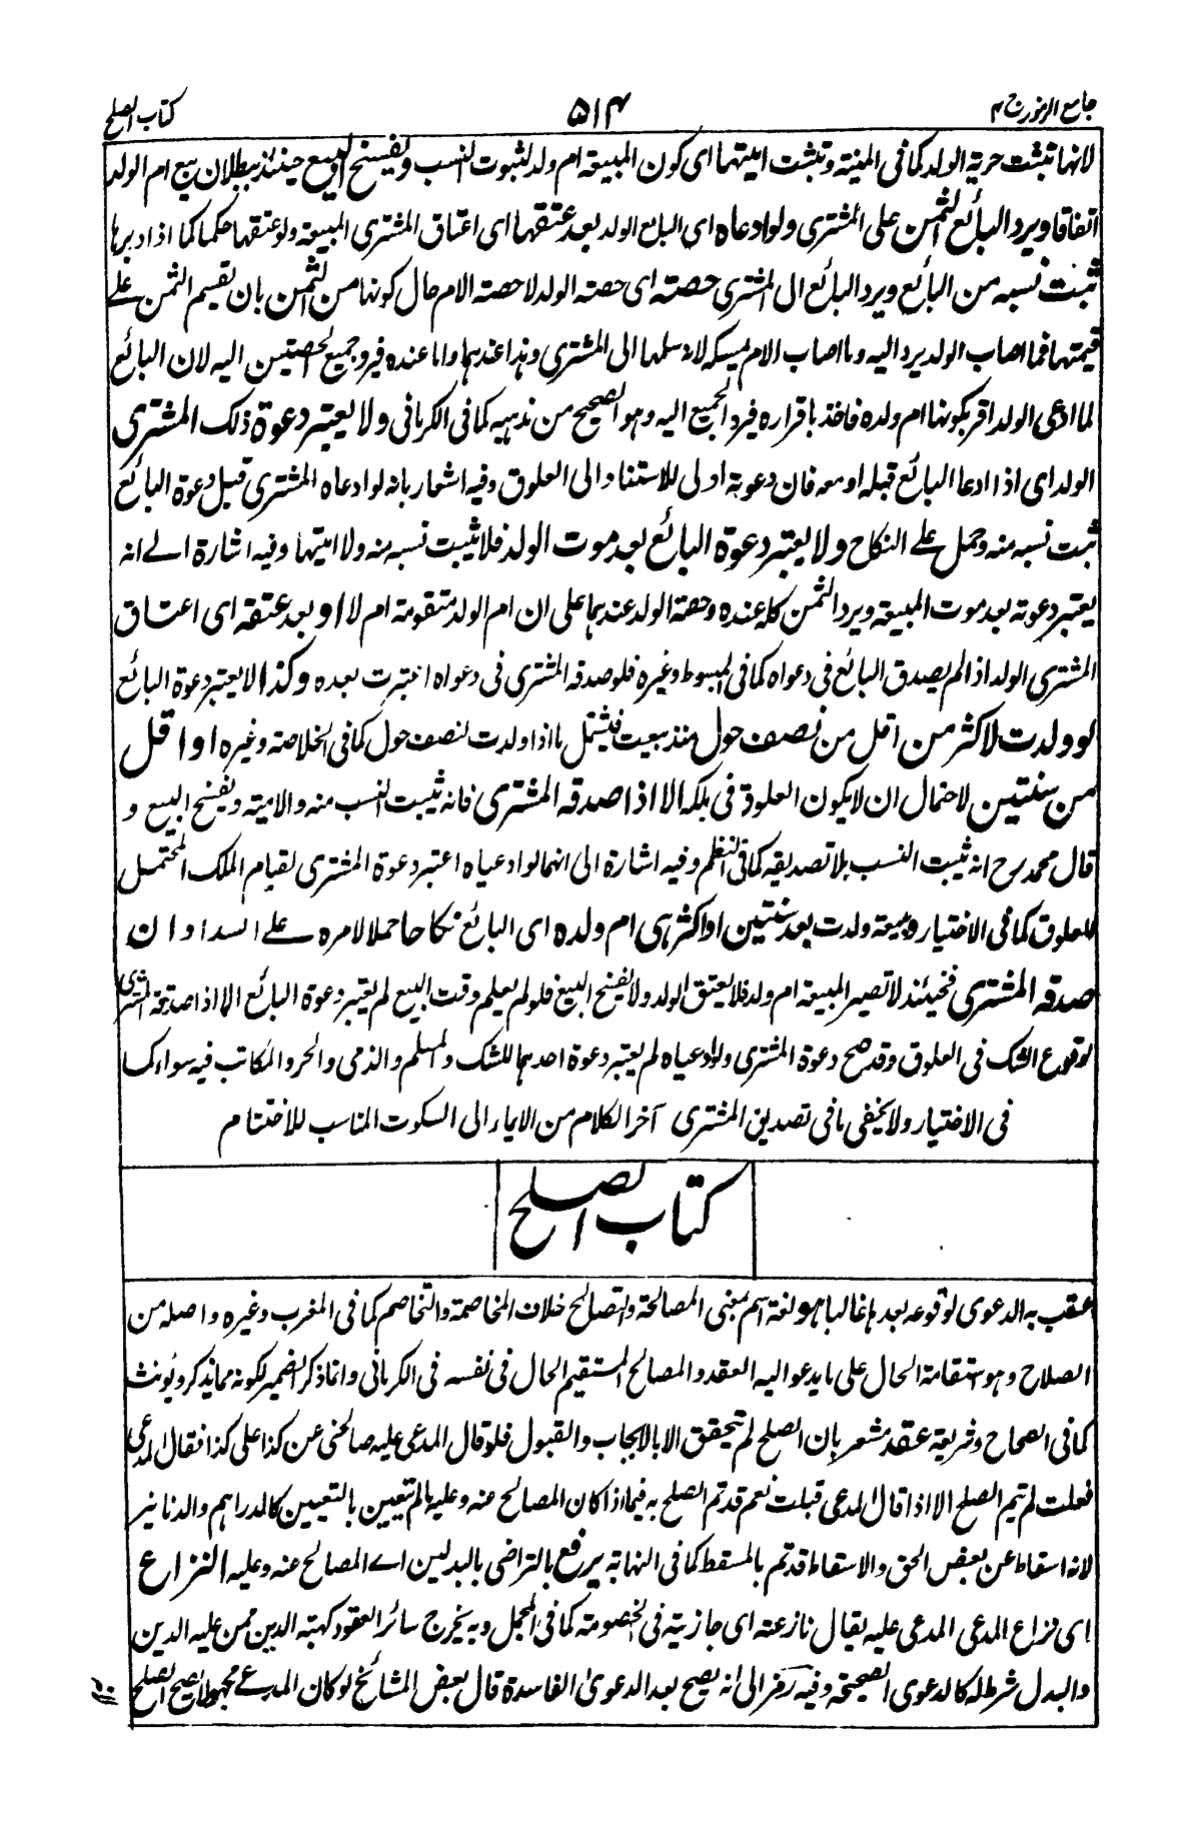 جامع الرموز ج ۴
۵۱۴
کتاب الصلح
لانها تثبت حرية الولد كما فى المنية وتثبت اميتها اى كون المبيعة ام ولد لثبوت النسب ويفسخ البيع حينئذ لبطلان بيع ام الولد
اتفاقا ويرد البائع الثمن على المشترى ولو ادعاه اى البائع الولد بعد عتقها اى اعتاق المشترى المبيعة ولو عتقها حكما كما اذا دبرها
ثبت نسبه من البائع ويرد البائع الى المشترى حصته اى حصة الولد لا حصة الام حال كونها من الثمن بان يقسم الثمن على
قيمتهما فما اصاب الولد يرد اليه وما اصاب الام يمسكه لانه سلمها الى المشترى وهذا عندهما واما عنده فيرد جميع الحصتين اليه لان البائع
لما ادعى الولد اقر بكونها ام ولده فاخذ باقراره فيرد الجميع اليه وهو الصحيح من مذهبه كما فى الكرمانى ولا يعتبر دعوة ذلك المشترى
الولد اى اذا ادعا البائع قبله او معه فان دعوته اولى للاستناد الى العلوق وفيه اشعار بانه لو ادعاه المشترى قبل دعوة البائع
ثبت نسبه منه وحمل على النكاح ولا يعتبر دعوة البائع بعد موت الولد فلا يثبت نسبه منه ولا اميتها وفيه اشارة الى انه
يعتبر دعوته بعد موت المبيعة ويرد الثمن كله عنده وحصة الولد عندهما على ان ام الولد متقومة ام لا او بعد عتقه اى اعتاق
المشترى الولد اذا لم يصدق البائع فى دعواه كما فى المبسوط وغيره فلو صدقه المشترى فى دعواه اعتبرت بعده وكذا لا يعتبر دعوة البائع
لو ولدت لاكثر من اقل من نصف حول منذ بيعت فيشتمل ما اذا ولدت لنصف حول كما فى الخلاصة وغيره او اقل
من سنتين لاحتمال ان لا يكون العلوق فى ملكه الا اذا صدقه المشترى فانه يثبت النسب منه والامية ويفسخ البيع و
قال محمد رح انه يثبت النسب بلا تصديقه كما فى النظم وفيه اشارة الى انهما لو ادعياه اعتبر دعوة المشترى لقيام الملك المحتمل
للعلوق كما فى الاختيار ومبيعة ولدت بعد سنتين او اكثر هى ام ولده اى البائع نكاحا حملا لامره على السداد ان
صدقه المشترى فحينئذ لا تصير المبيعة ام ولد فلا يعتق الولد ولا يفسخ البيع فلو لم يعلم وقت البيع لم يعتبر دعوة البائع الا اذا صدقه المشترى
لوقوع الشك فى العلوق وقد صح دعوة المشترى ولو ادعياه لم يعتبر دعوة احدهما للشك والمسلم والذمى والحر والمكاتب فيه سواء كما
فى الاختيار ولا يخفى ما فى تصديق المشترى آخر الكلام من الايماء الى السكوت المناسب للاختتام
كتاب الصلح
عقب به الدعوى لوقوعه بعدها غالبا هو لغة اسم بمعنى المصالحة والتصالح خلاف المخاصمة والتخاصم كما فى المغرب وغيره واصله من
الصلاح وهو استقامة الحال على ما يدعو اليه العقد والمصالح المستقيم الحال فى نفسه فى الكرمانى وانما ذكر الضمير لكونه مما يذكر ويونث
كما فى الصحاح وشريعة عقد مشعر بان الصلح لم يتحقق الا بالايجاب والقبول فلو قال المدعى عليه صالحنى عن كذا على كذا فقال المدعى
فعلت لم يتم الصلح الا اذا قال المدعى قبلت نعم قد تم الصلح به فيما اذا كان المصالح عنه وعليه مالم يتعين بالتعيين كالدراهم والدنانير
لانه اسقاط عن بعض الحق والاسقاط قد تم بالمسقط كما فى النهاية يرفع بالتراضى بالبدلين اے المصالح عنه وعليه النزاع
اى نزاع المدعى المدعى عليه يقال نازعته اى جاذبته فى الخصومة كما فى المجمل وبه يخرج سائر العقود كهبة الدين ممن عليه الدين
والبدل شرط له كالدعوى الصحيحة وفيه رمز الى انه يصح بعد الدعوى الفاسدة قال بعض المشائخ لو كان المدعى مجهولا صح الصلح